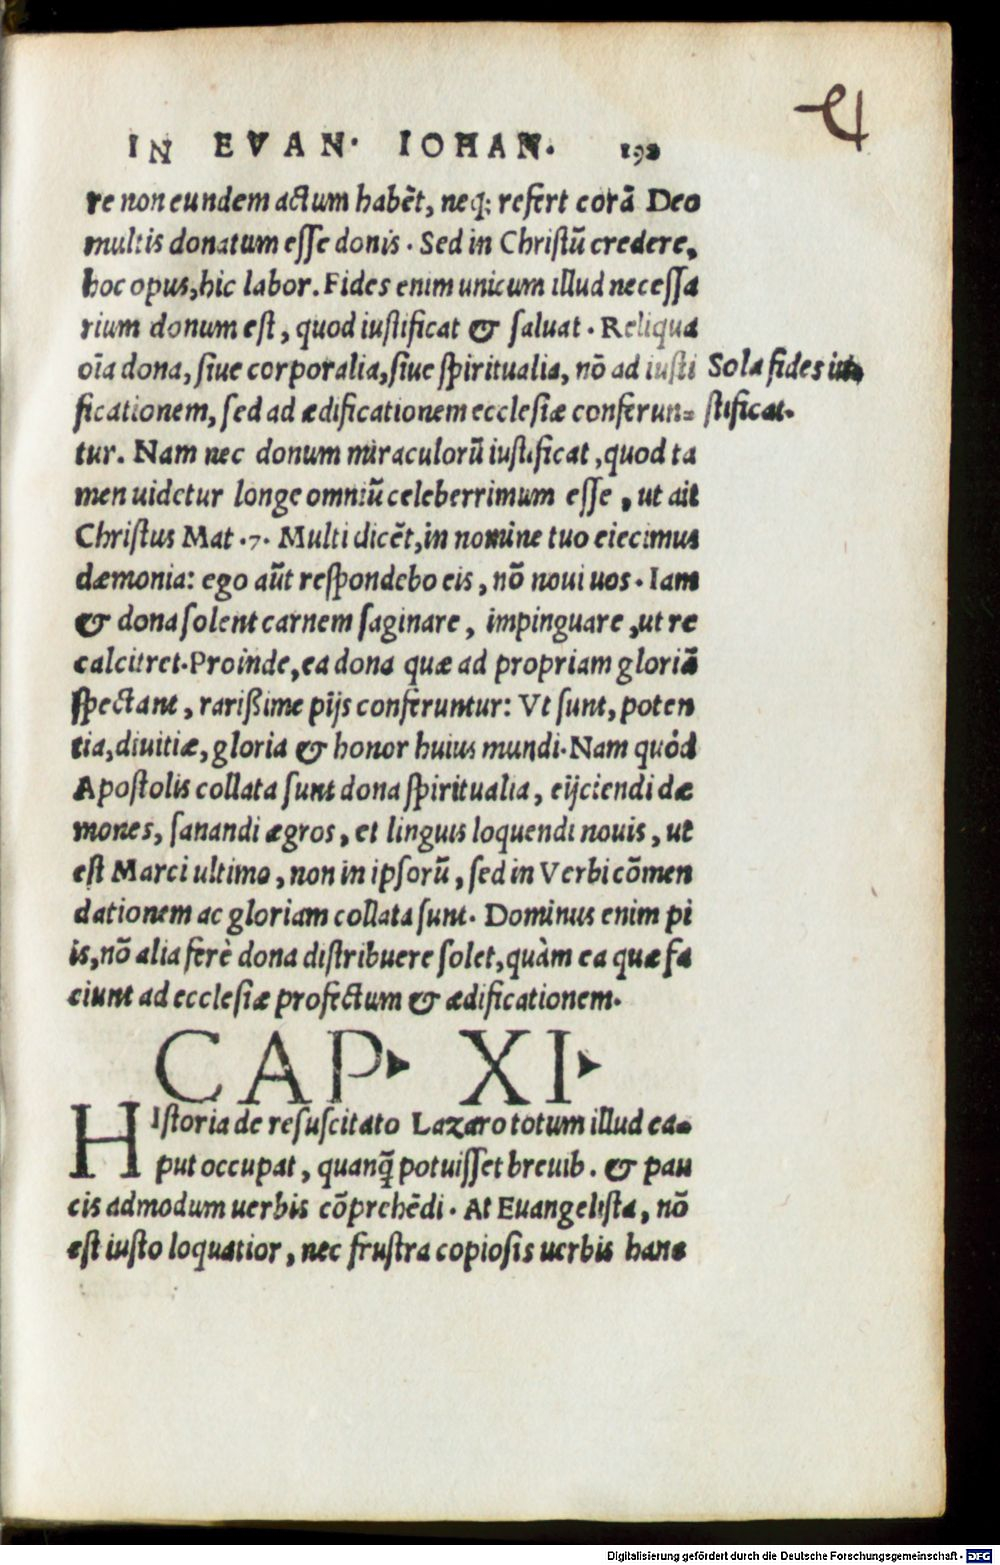 IN EVAN. IOHAN. 192
re non eundem actum habẽt, neq; refert corã Deo
multis donatum eſſe donis. Sed in Chriſtũ credere,
hoc opus, hic labor. Fides enim unicum illud neceſſa
rium donum eſt, quod iuſtificat & ſaluat. Reliqua
oĩa dona, ſiue corporalia, ſiue ſpiritualia, nõ ad iuſti
ficationem, ſed ad ædificationem eccleſiæ conferun=
tur. Nam nec donum miraculorũ iuſtificat, quod ta
men uidetur longe omniũ celeberrimum eſſe, ut ait
Chriſtus Mat .7. Multi dicẽt, in nomine tuo eiecimus
dæmonia: ego aũt reſpondebo eis, nõ noui uos. Iam
& dona ſolent carnem ſaginare, impinguare, ut re
calcitret. Proinde, ea dona quæ ad propriam gloriã
ſpectant, rarißime pijs conferuntur: Vt ſunt, poten
tia, diuitiæ, gloria & honor huius mundi. Nam quòd
Apoſtolis collata ſunt dona ſpiritualia, eijciendi dæ
mones, ſanandi ægros, et linguis loquendi nouis, ut
eſt Marci ultimo, non in ipſorũ, ſed in Verbi cõmen
dationem ac gloriam collata ſunt. Dominus enim pi
is, nõ alia ferè dona diſtribuere ſolet, quàm ea quæ fa
ciunt ad eccleſiæ profectum & ædificationem.
Sola fides iu
ſtificat.
CAP. XI.
HIſtoria de reſuſcitato Lazaro totum illud ca=
put occupat, quanq̃ potuiſſet breuib. & pau
cis admodum uerbis cõprehẽdi. At Euangeliſta, nõ
eſt iuſto loquatior, nec fruſtra copioſis uerbis hanc
Digitalisierung gefördert durch die Deutsche Forschungsgemeinschaft - DFG